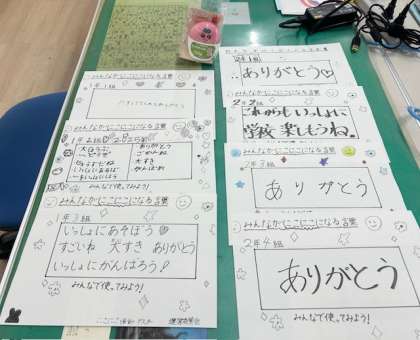 みんながにこにこになる言葉
1年1組
みんながにこにこになる言葉
1年2組
ありがとう
ごめんね
大すき
がんばれ
みんなで使ってみよう!
みんながにこにこになる言葉
1年3組
いっしょにあそぼう
すごいね 大すき ありがとう
いっしょにがんばろう!
みんなで使ってみよう!
2年1組
ありがとう♡
2年2組
これからもいっしょに
学校楽しもうね
みんながにこにこになる言葉
2年3組
ありがとう
みんながにこにこになる言葉
2年4組
ありがとう
みんなで使ってみよう!